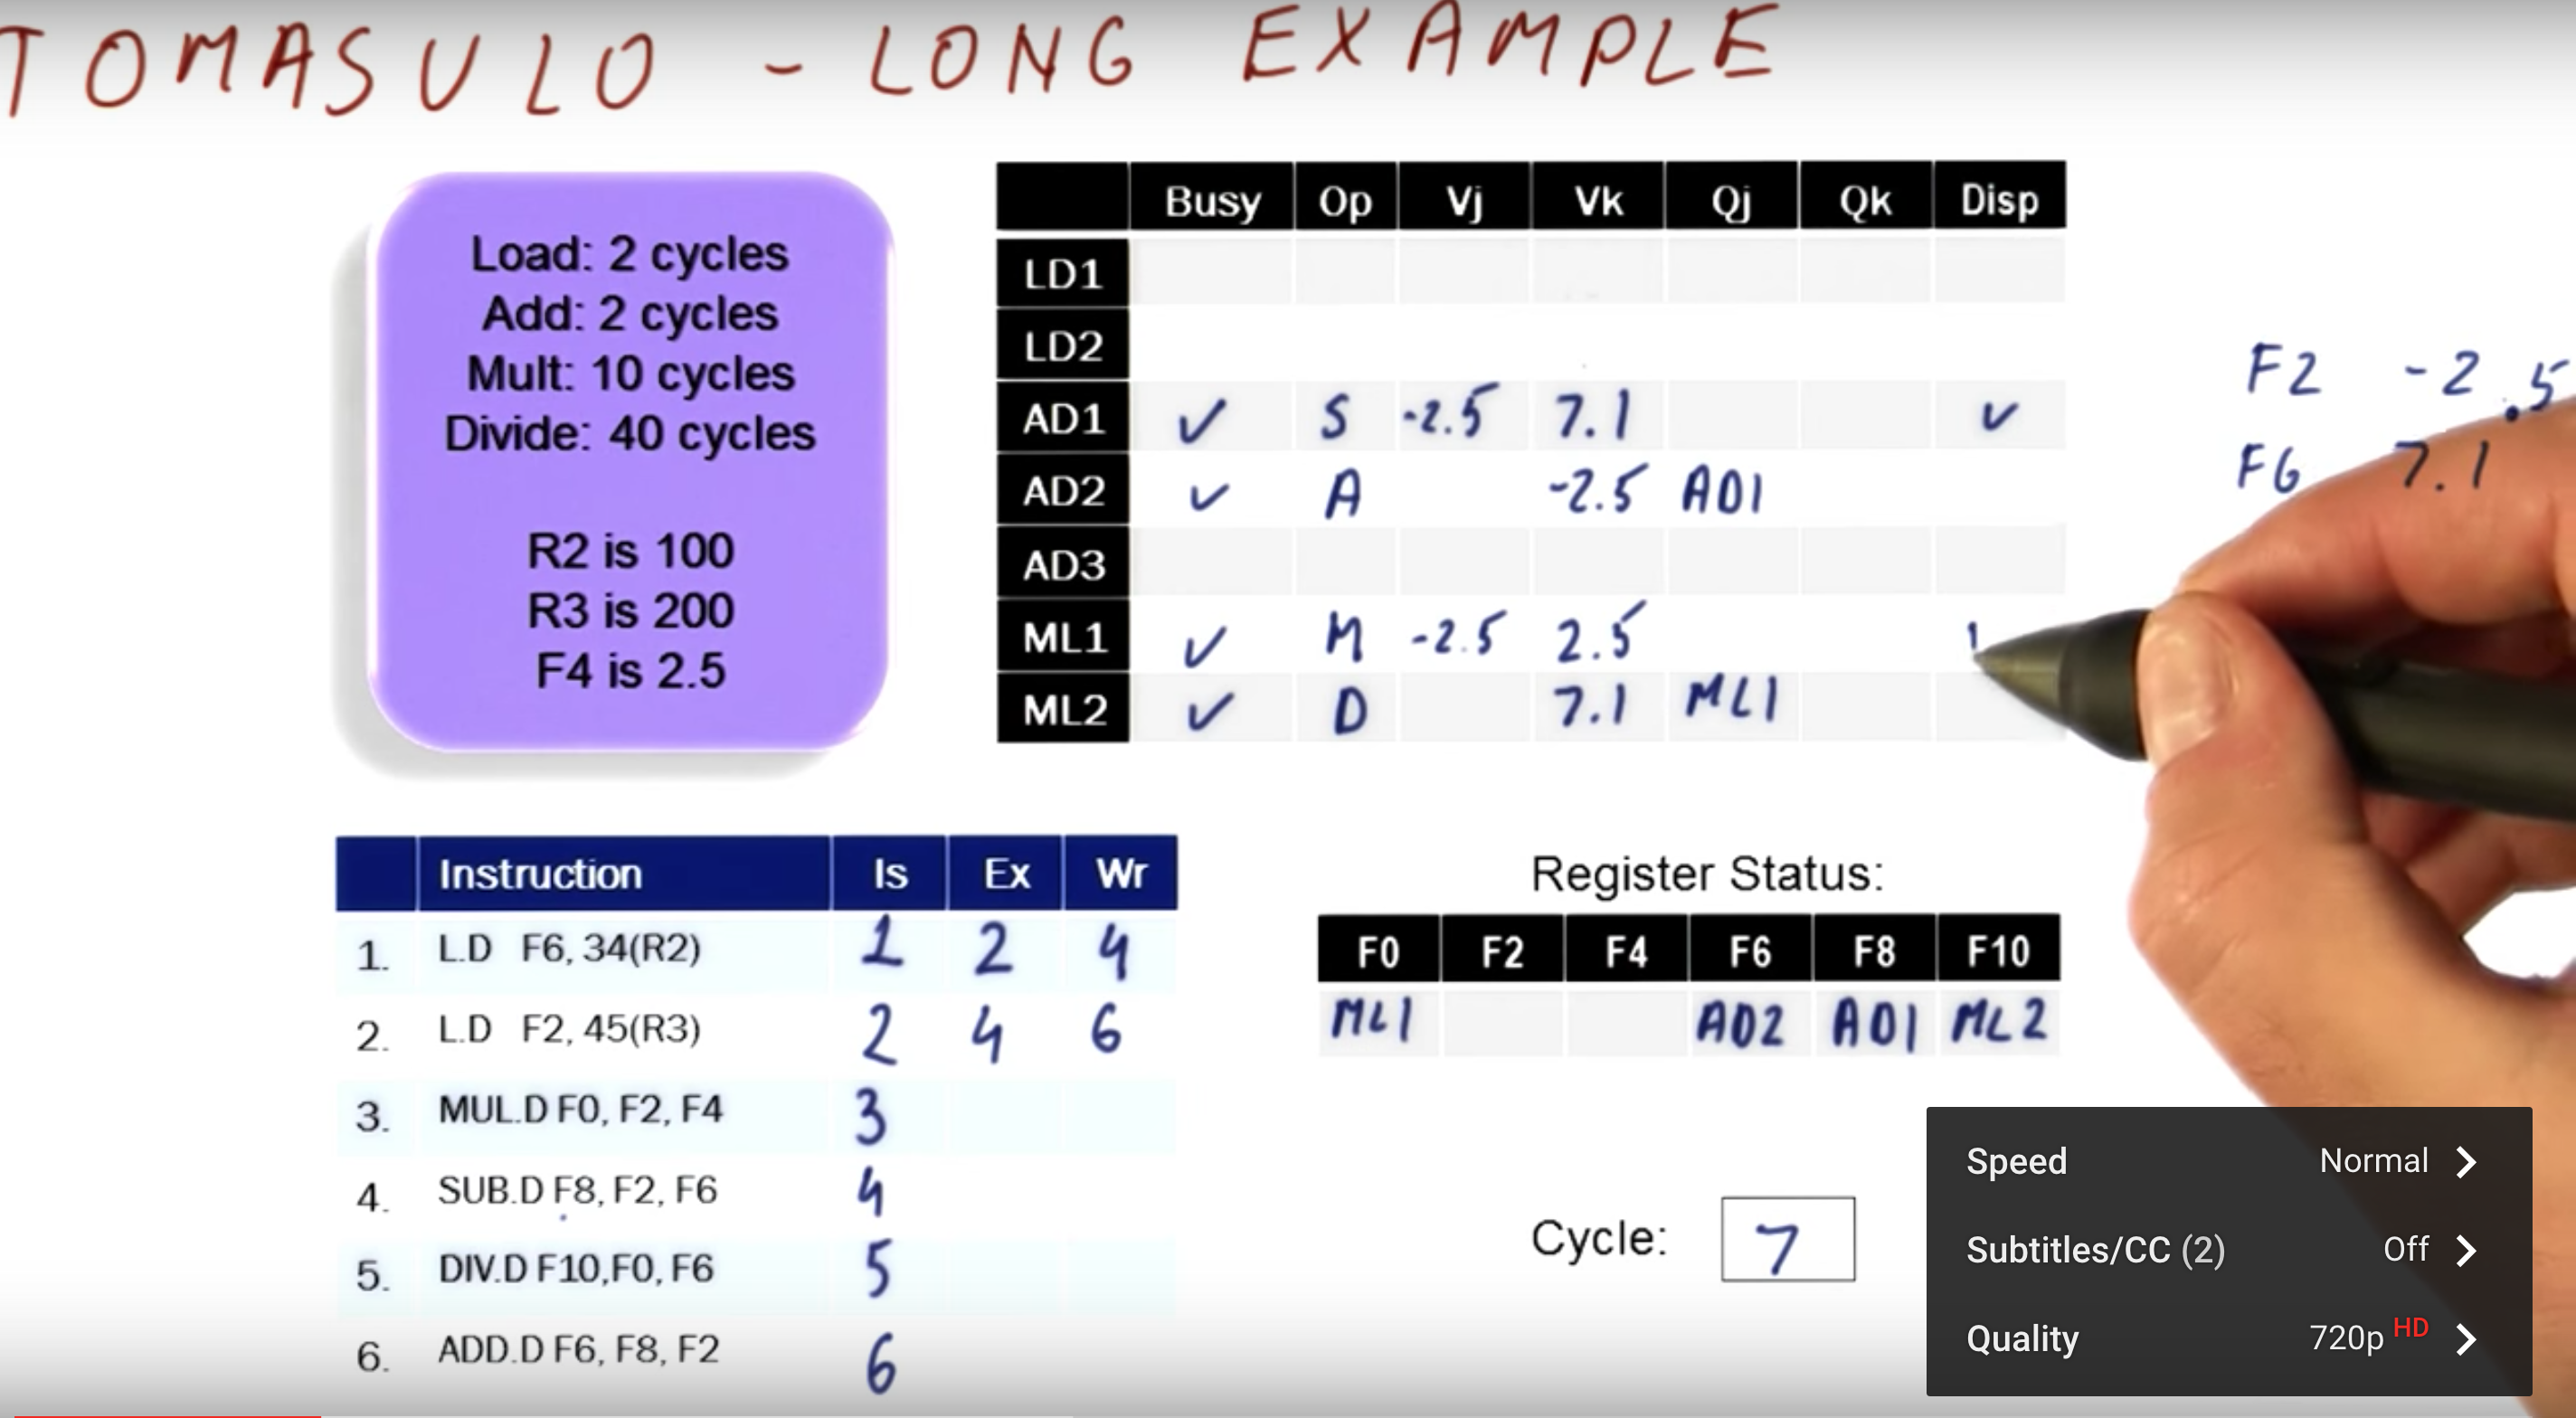 TOMASULO - LONG EXAMPLE
Load: 2 cycles
Add: 2 cycles
Mult: 10 cycles
Divide: 40 cycles
R2 is 100
R3 is 200
F4 is 2.5
Busy Op Vj Vk Qj Qk Disp
LD1
LD2
AD1 ✓ S -2.5 7.1 ✓
AD2 ✓ A -2.5 AD1
AD3
ML1 ✓ M -2.5 2.5
ML2 ✓ D 7.1 ML1
F2 -2.5
F6 7.1
Instruction Is Ex Wr
1. L.D F6, 34(R2) 1 2 4
2. L.D F2, 45(R3) 2 4 6
3. MUL.D F0, F2, F4 3
4. SUB.D F8, F2, F6 4
5. DIV.D F10,F0, F6 5
6. ADD.D F6, F8, F2 6
Register Status:
F0 F2 F4 F6 F8 F10
ML1 AD2 AD1 ML2
Cycle: 7
Speed Normal
Subtitles/CC (2) Off
Quality 720p HD